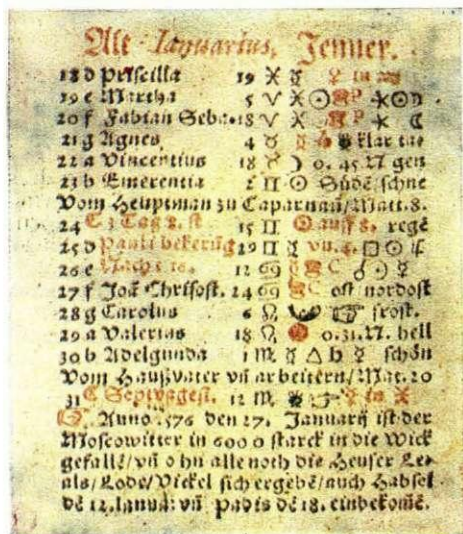 Alt Ianuarius. Jenner.
18 d Priscilla 19 ♓ ☿ ♀ in ♒
19 e Martha 5 ♈ ⚹ ☉ P ⚹ ☉
20 f Fabian Seba. 18 ♈ ⚹ P ⚹ ☾
21 g Agnes 4 ♉ klar
22 a Vincentius 18 ♉ ☽ 0. 45. N gen
23 b Emerentia 2 ♊ ☉ Süde/schne
Vom Heuptman zu Capernau/Matt. 8.
24 C 3 15 ♊ ☉ auff 8. regē
25 d Pauli bekerūg 29 ♊ □ ☉ ♃
26 e 12 ♋ C ☌ ☉ ☿
27 f Joā Chrisost. 24 ♋ C ost nordost
28 g Carolus 6 ♌ ☞ frost.
29 a Valerius 18 ♌ 0. 31. N. hell
30 b Adelgunda 1 ♍ ☿ △ ♄ ☿ schön
Vom Haußvater vñ arbeitern/Mat. 20
31 C Septuagesi. 12 ♍ ☞ ♀ in ♓
Anno. 576 den 27. Januarij ist der
Moscowitter in 6000 starck in die Wick
gefallē/vñ ohn alle noch die Heuser Le-
als/Lode/Vickel sich ergebē/auch Habsel
dē 12. Januā. vñ Padis dē 18. einbekomē.